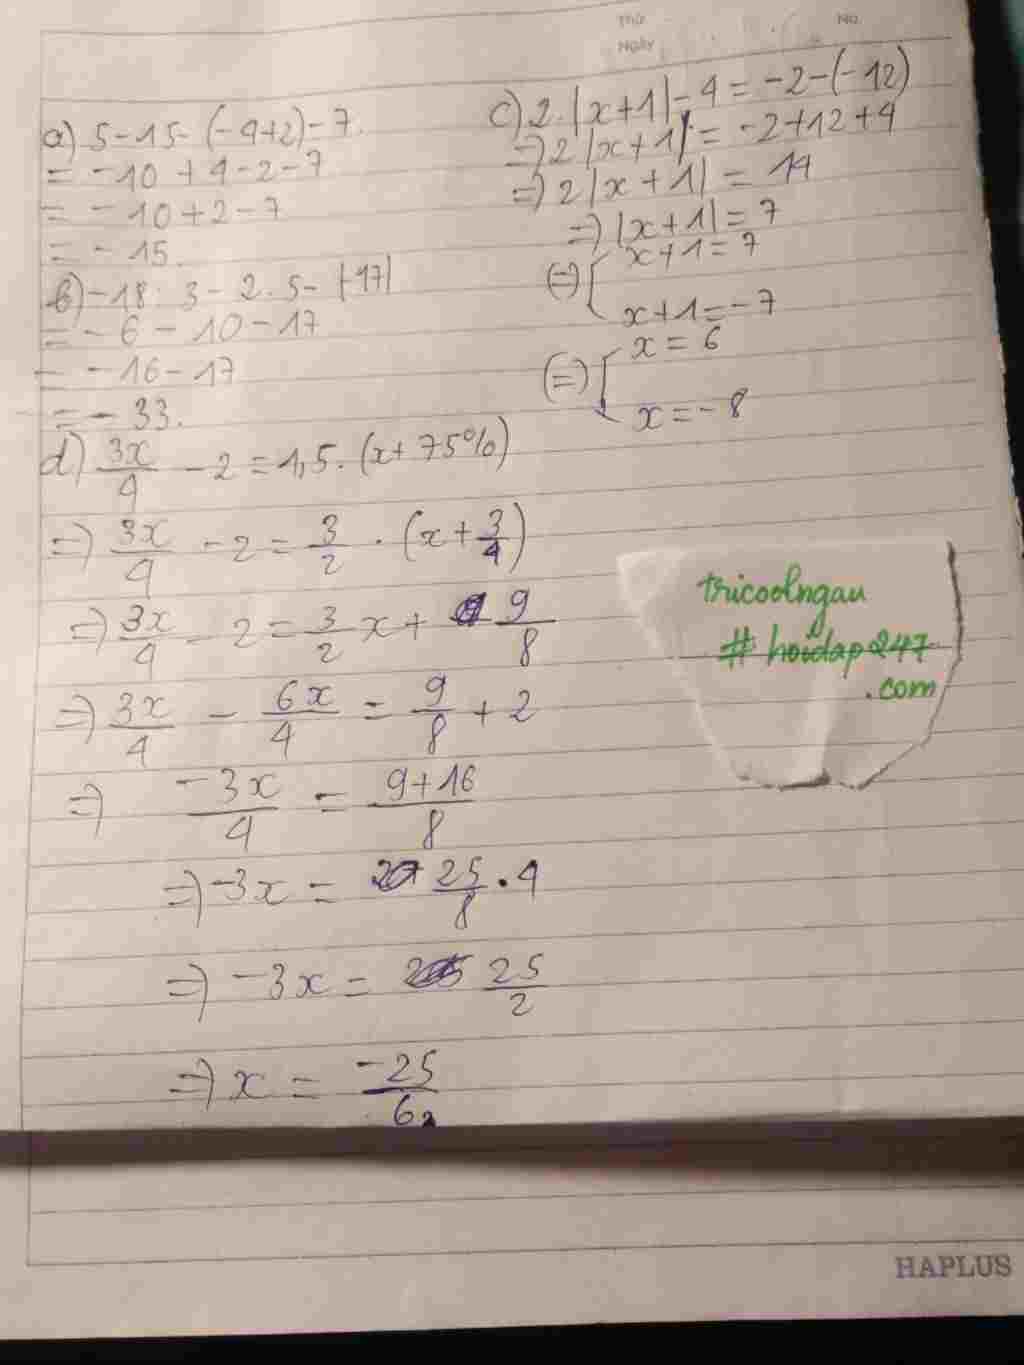 Thứ
Ngày
No.
a) 5-15-(-4+2)-7.
= -10+4-2-7
= -10+2-7
= -15.
b) -18:3-2.5-|17|
= -6-10-17
= -16-17
= -33.
c) 2.|x+1|-4=-2-(-12)
=> 2|x+1|=-2+12+4
=> 2|x+1|=14
=> |x+1|=7
(=) [ x+1=7
x+1=-7
(=) [ x=6
x=-8
d) 3x/4 -2=1,5.(x+75%)
=> 3x/4 -2=3/2 .(x+3/4)
=> 3x/4 -2=3/2 x+ 9/8
=> 3x/4 - 6x/4 = 9/8 +2
=> -3x/4 = 9+16/8
=> -3x = 25/8 . 4
=> -3x = 25/2
=> x = -25/6
tricoolngau
# hoidap247
.com
HAPLUS